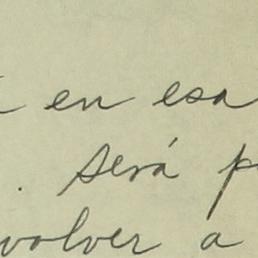 en esa
. Será p
volver a